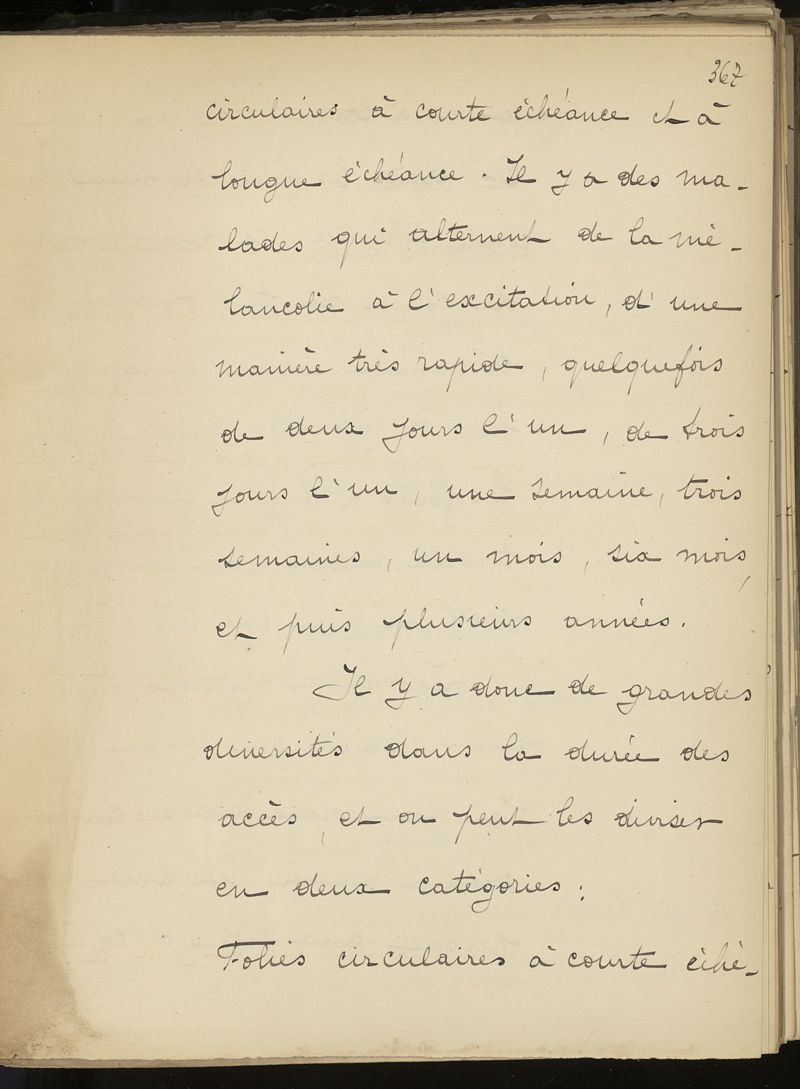 367
circulaires à courte échéance et à
longue échéance. Il y a des ma-
lades qui alternent de la mé-
lancolie à l'excitation, d'une
manière très rapide, quelquefois
de deux jours l'un, de trois
jours l'un, une semaine, trois
semaines, un mois, six mois,
et puis plusieurs années.
Il y a donc de grandes
diversités dans la durée des
accès, et on peut les diviser
en deux catégories :
Folies circulaires à courte éché-